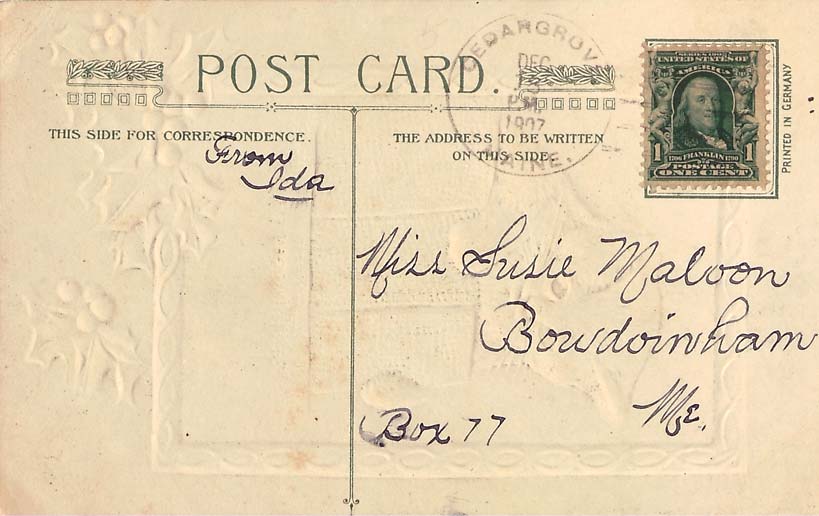 POST CARD.
THIS SIDE FOR CORRESPONDENCE.
From
Ida
THE ADDRESS TO BE WRITTEN
ON THIS SIDE.
CEDARGROVE
DEC
PM
1907
MAINE.
SERIES 1902
UNITED STATES OF
AMERICA
1706 FRANKLIN 1790
1 1
POSTAGE
ONE CENT
PRINTED IN GERMANY
Miss Susie Maloon
Bowdoinham
Me.
Box 77